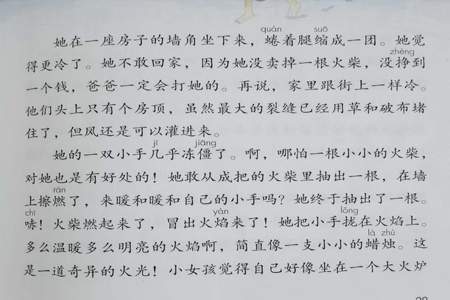 quán suō
她在一座房子的墙角坐下来，蜷着腿缩成一团。她觉
zhèng
得更冷了。她不敢回家，因为她没卖掉一根火柴，没挣到
一个钱，爸爸一定会打她的。再说，家里跟街上一样冷。
他们头上只有个房顶，虽然最大的裂缝已经用草和破布堵
住了，但风还是可以灌进来。
jī jiāng
她的一双小手几乎冻僵了。啊，哪怕一根小小的火柴，
对她也是有好处的！她敢从成把的火柴里抽出一根，在墙
rán
上擦燃了，来暖和暖和自己的小手吗？她终于抽出了一根。
chī yàn lǒng
哧！火柴燃起来了，冒出火焰来了！她把小手拢在火焰上。
là zhú
多么温暖多么明亮的火焰啊，简直像一支小小的蜡烛。这
是一道奇异的火光！小女孩觉得自己好像坐在一个大火炉